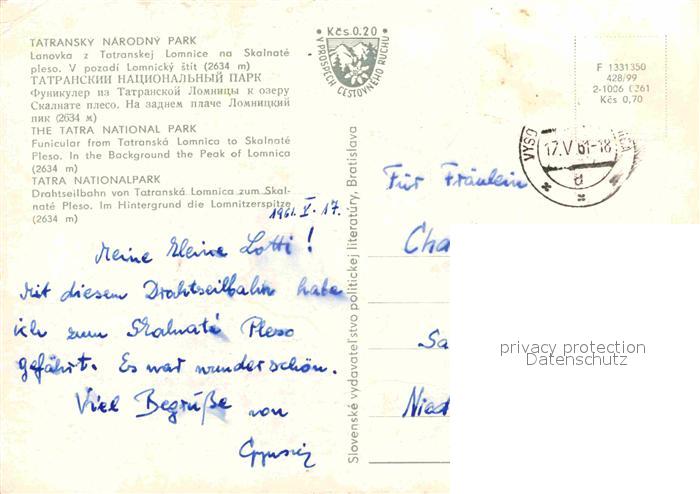 TATRANSKÝ NÁRODNÝ PARK
Lanovka z Tatranskej Lomnice na Skalnaté
pleso. V pozadí Lomnický štít (2634 m)
ТАТРАНСКИЙ НАЦИОНАЛЬНЫЙ ПАРК
Фуникулер из Татранской Ломницы к озеру
Скалнате плесо. На заднем плаче Ломницкий
пик (2634 м)
THE TATRA NATIONAL PARK
Funicular from Tatranská Lomnica to Skalnaté
Pleso. In the Background the Peak of Lomnica
(2634 m)
TATRA NATIONALPARK
Drahtseilbahn von Tatranská Lomnica zum Skal-
naté Pleso. Im Hintergrund die Lomnitzerspitze
(2634 m)
• Kčs 0.20 •
V PROSPECH CESTOVNÉHO RUCHU
F 1331350
428/99
2-1006 (361
Kčs 0,70
VYSO
17.V 61-18
a
Slovenské vydavateľstvo politickej literatúry, Bratislava
1961. V. 17.
Meine kleine Lotti!
Mit diesem Drahtseilbahn habe
ich zum Skalnaté Pleso
gefährt. Es war wunderschön.
Viel Begrüße von
Für Fräulein
Cha
Sa
Nied
privacy protection
Datenschutz